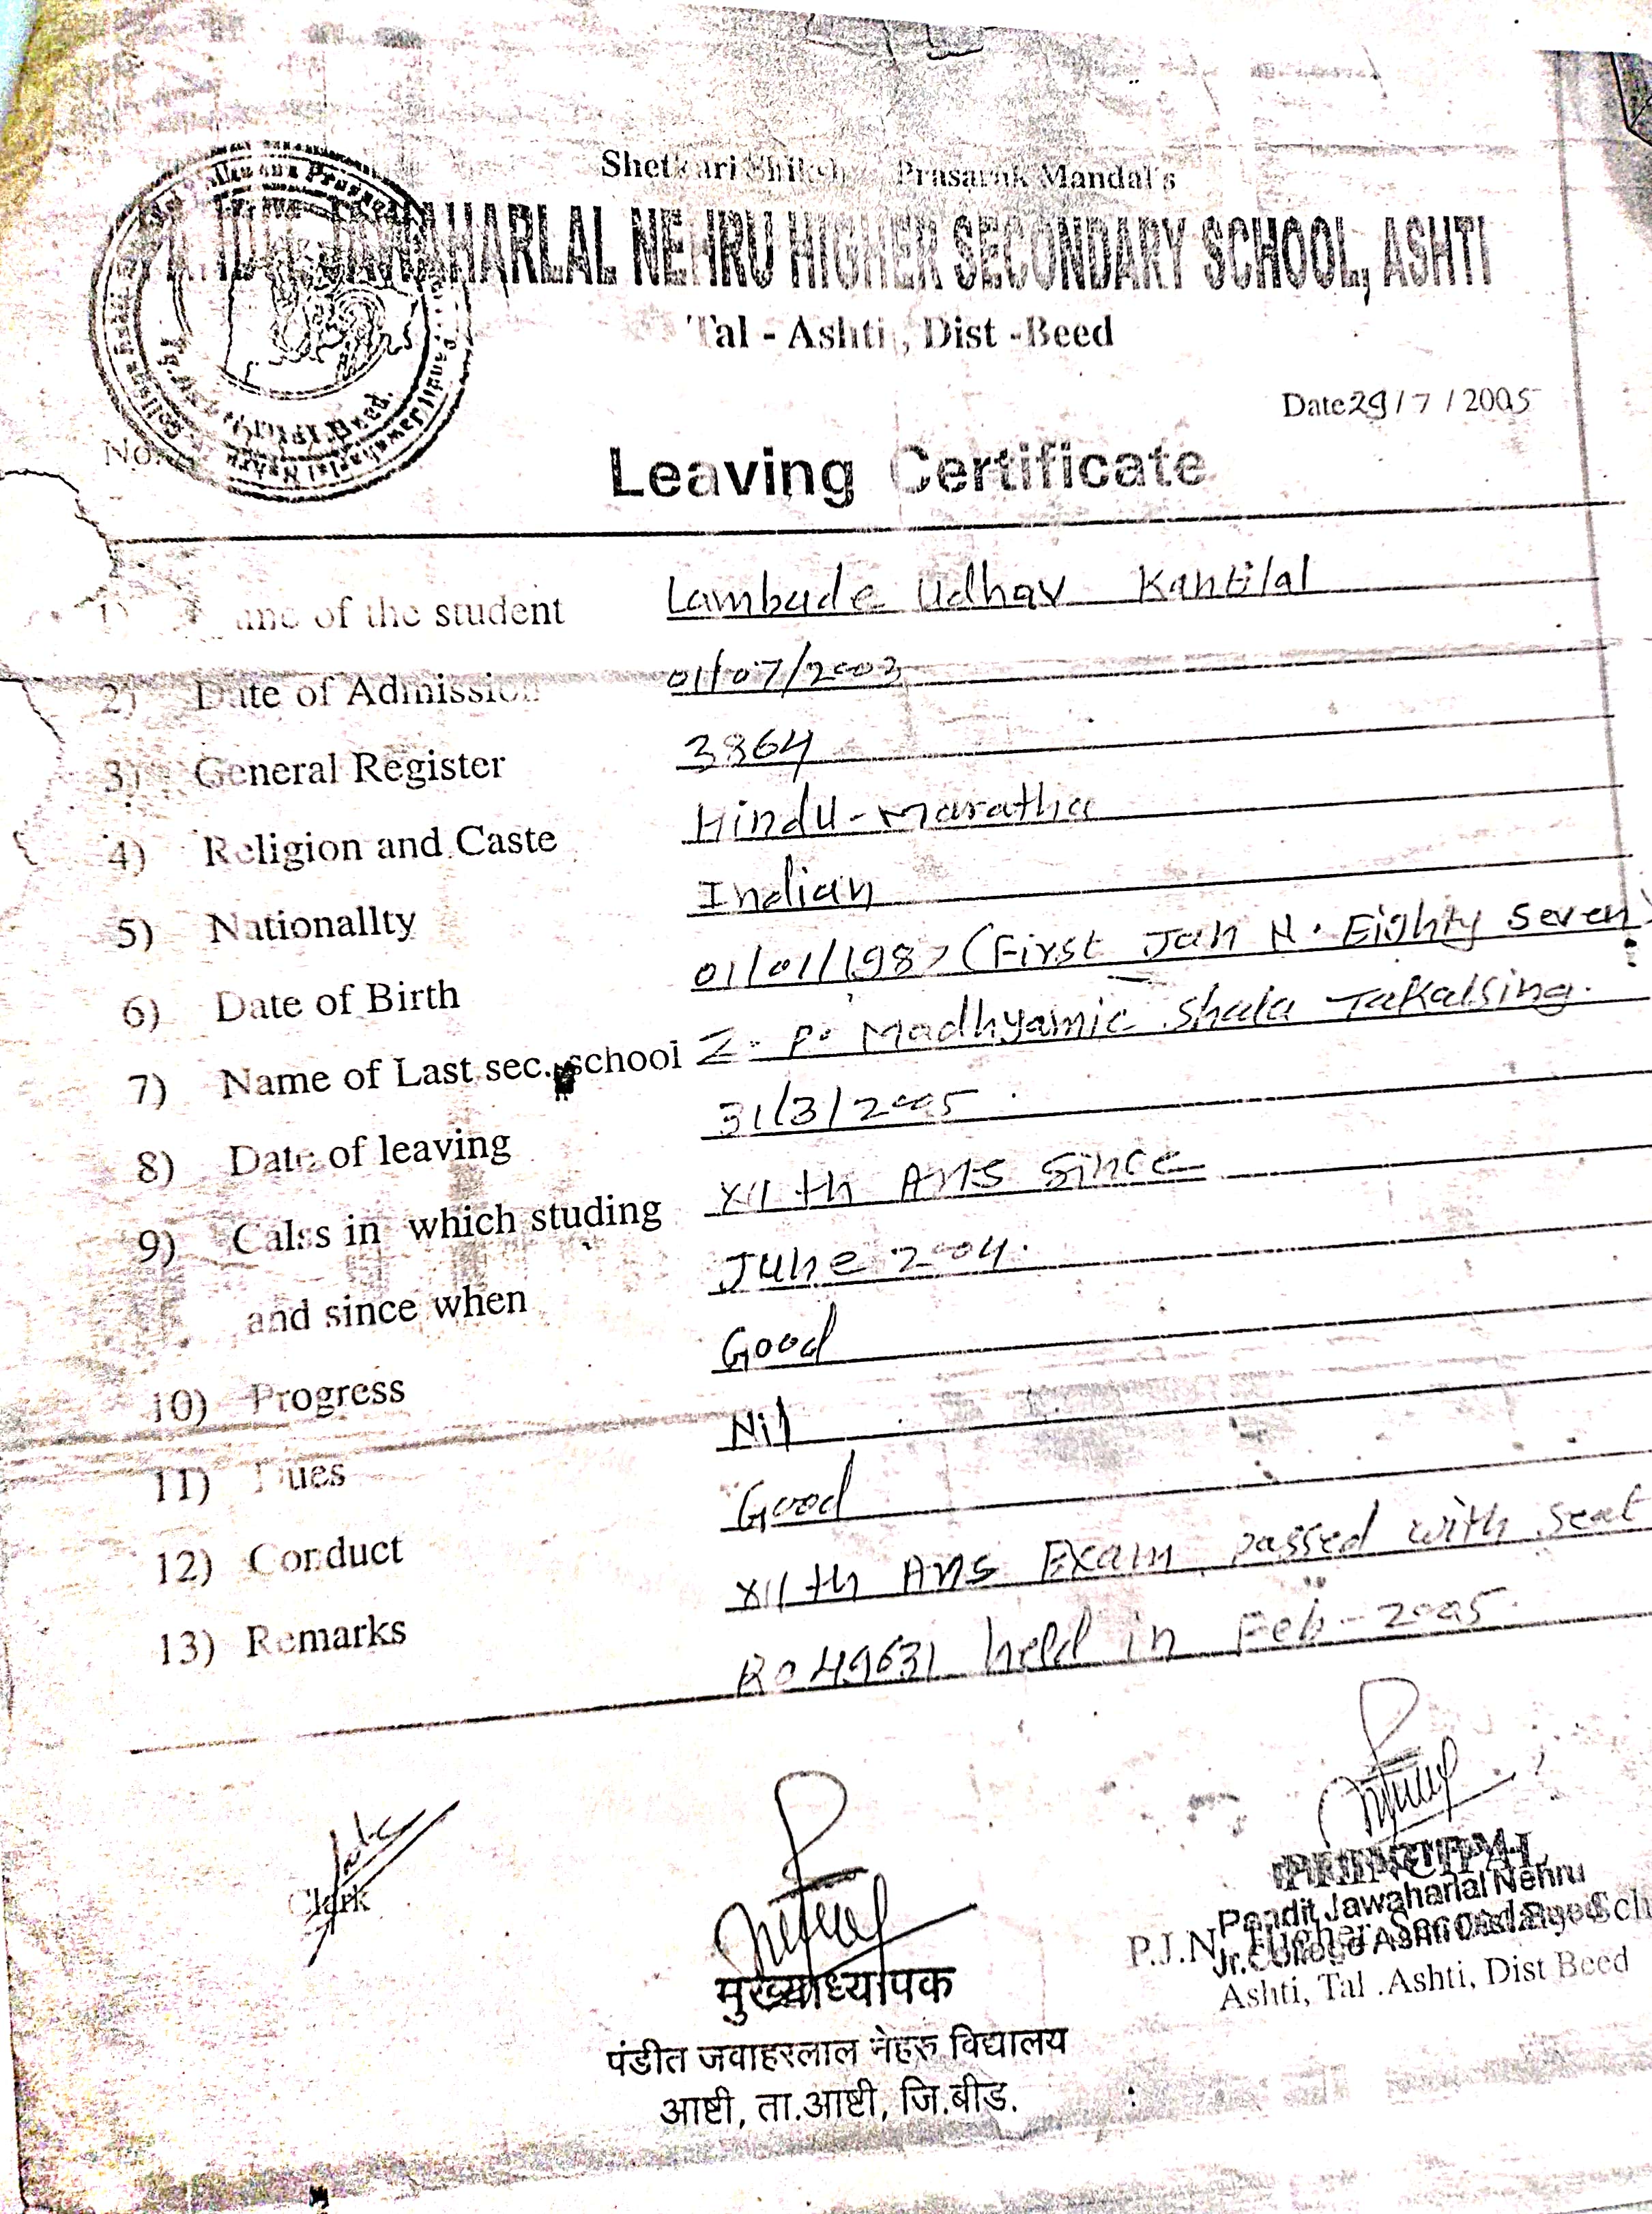 Shetkari Shikshan Prasarak Mandal's
JAWAHARLAL NEHRU HIGHER SECONDARY SCHOOL, ASHTI
Tal - Ashti, Dist -Beed
Date 29 / 7 / 2005
No.
Leaving Certificate
1) Name of the student Lambude Udhav Kantilal
2) Date of Admission 01/07/2003
3) General Register 3864
4) Religion and Caste Hindu-Maratha
5) Nationallty Indian
6) Date of Birth 01/01/1987 (First Jan N. Eighty Seven)
7) Name of Last sec. school Z. P. Madhyamic Shala Takalsing.
8) Date of leaving 31/3/2005
9) Calss in which studing XII th Arts Since
and since when June 2004.
10) Progress Good
11) Dues Nil
12) Conduct Good
13) Remarks XII th Arts Exam passed with seat
R049631 held in Feb-2005
Clark
मुख्याध्यापक
पंडीत जवाहरलाल नेहरु विद्यालय
आष्टी, ता.आष्टी, जि.बीड.
PRINCIPAL
Pandit Jawaharlal Nehru
Jr. College Ashti Dist. Beed
P.J.N. Higher Secondary Sch
Ashti, Tal .Ashti, Dist Beed